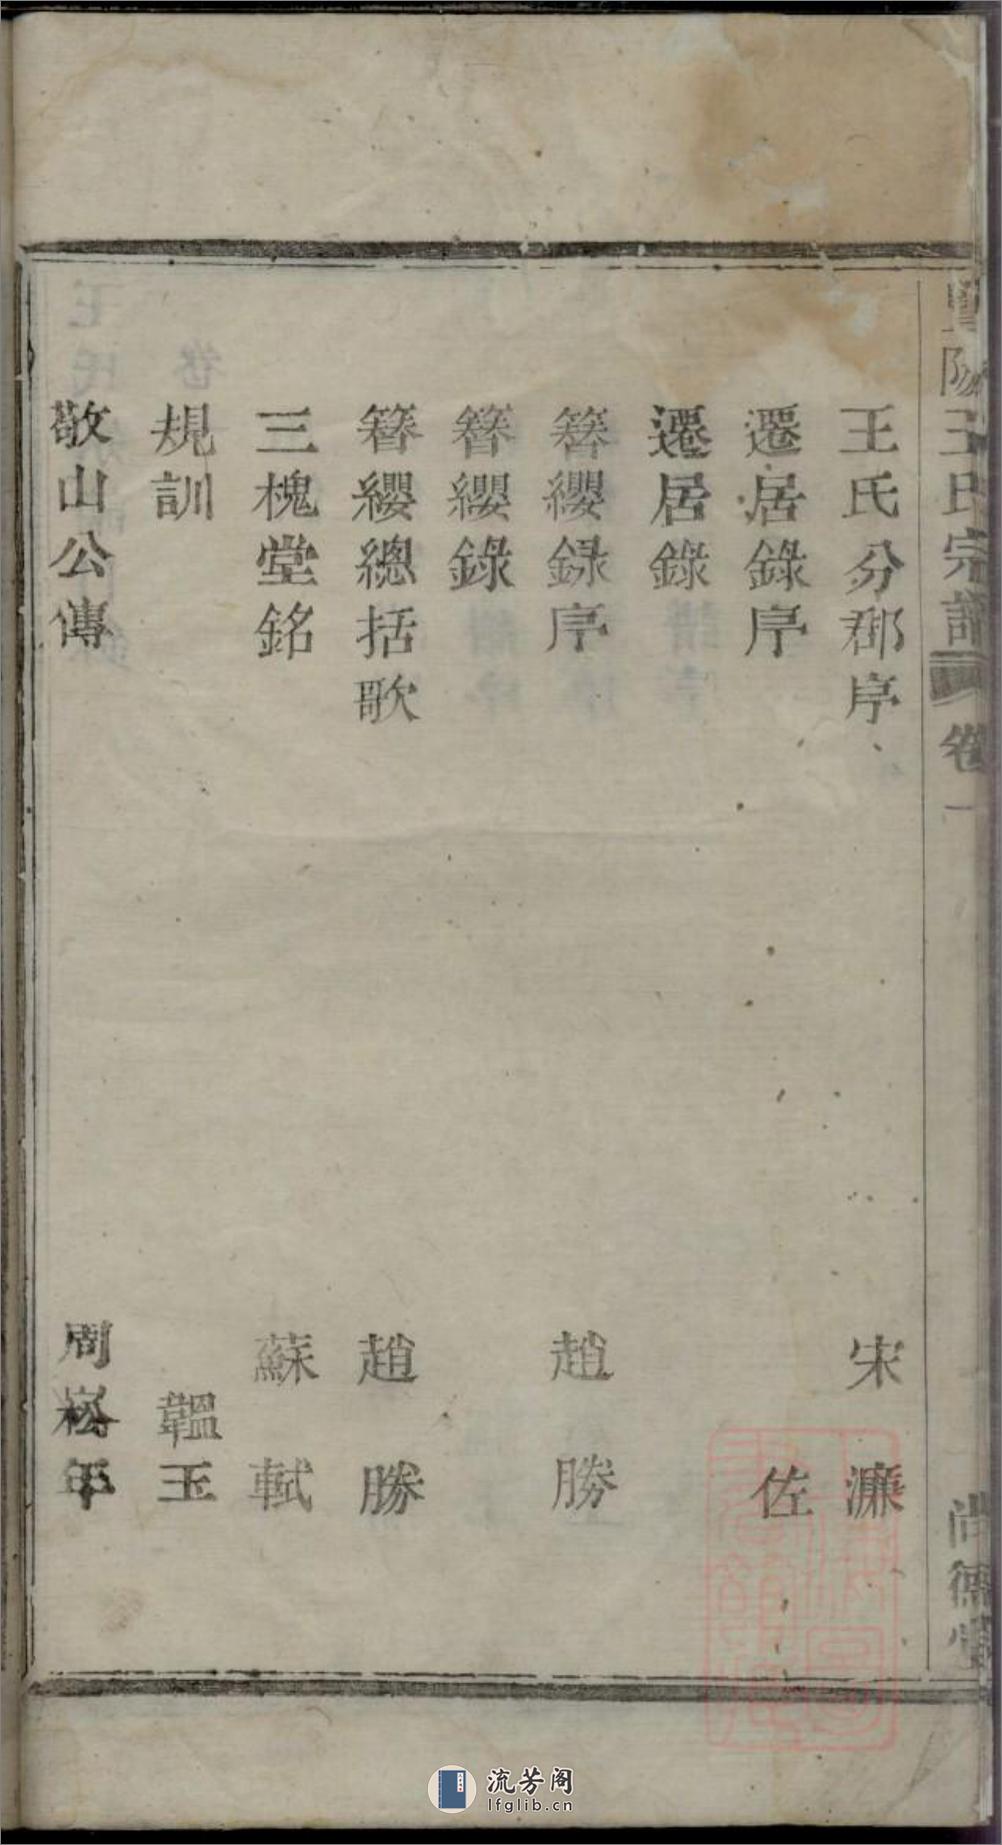 陽王氏宗譜 卷一 尚德堂
王氏分郡序 宋濂
遷居錄序 佐
遷居錄
簪纓錄序 趙勝
簪纓錄
簪纓總括歌 趙勝
三槐堂銘 蘇軾
規訓 韞玉
敬山公傳 周崧年
流芳阁
lfglib.cn